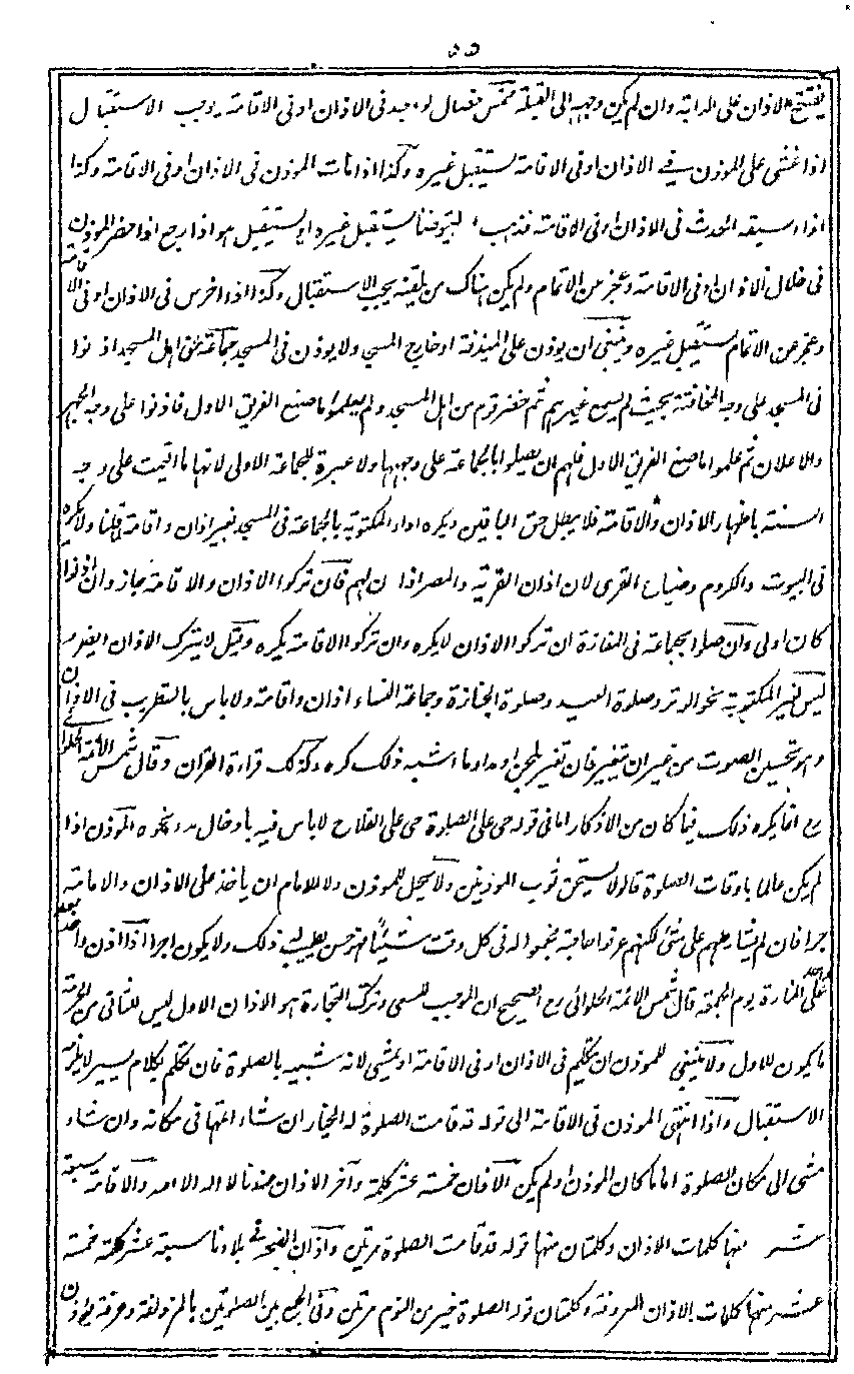 ٥٥
يفتتح الاذان على الدابة وان لم يكن وجهه الى القبلة خمس خصال لو وجد فى الاذان او فى الاقامة يوجب الاستقبال
اذا غشى على الموذن فى الاذان او فى الاقامة يستقبل غيره وكذا اذا مات الموذن فى الاذان او فى الاقامة وكذا
اذا سبقه الحدث فى الاذان او فى الاقامة فذهب ليتوضأ يستقبل غيره او يستقبل هو اذا رجع اذا حضر الموذن
فى خلال الاذان او فى الاقامة وعجز عن الاتمام ولم يكن هناك من يلقنه يجب الاستقبال وكذا اذا خرس فى الاذان او فى الاقامة
وعجز عن الاتمام يستقبل غيره وينبغى ان يوذن على الميذنة او خارج المسجد ولا يوذن فى المسجد جماعة من اهل المسجد اذنوا
فى المسجد على وجه المخافتة بحيث لم يسمع غيرهم ثم حضر قوم من اهل المسجد ولم يعلموا ما صنع الفريق الاول فاذنوا على وجه الجهر
والاعلان ثم علموا ما صنع الفريق الاول فلهم ان يصلوا بالجماعة على وجهها ولا عبرة للجماعة الاولى لانها ما اقيمت على وجه
السنة باظهار الاذان والاقامة فلا يبطل حق الباقين ويكره اداء المكتوبة بالجماعة فى المسجد بغير اذان واقامة قلنا ولا يكره
فى البيوت والكروم وضياع القرى لان اذان القرية والمصر اذان لهم فان تركوا الاذان والاقامة جاز وان اذنوا
كان اولى وان صلوا بجماعة فى المفازة ان تركوا الاذان لا يكره وان تركوا الاقامة يكره وقيل لا يترك الاذان ايضا
ليس لغير المكتوبة نحو الوتر وصلوة العيد وصلوة الجنازة وجماعة النساء اذان واقامة ولا باس بالتطريب فى الاذان
وهو تحسين الصوت من غير ان تتغير فان تغير بلحن او مد او ما اشبه ذلك كره وكذلك قراءة القران وقال شمس الائمة الحلوائى
رح انما يكره ذلك فيما كان من الاذكار اما فى قوله حى على الصلوة حى على الفلاح لا باس فيه بادخال مد ونحوه الموذن اذا
لم يكن عالما باوقات الصلوة قالوا لا يستحق ثواب الموذنين ولا يحل للموذن ولا للامام ان ياخذ على الاذان والامامة
اجرا فان لم يشارطهم على شئ لكنهم عرفوا حاجته فجمعوا له فى كل وقت شيئا فهو حسن يطيب له ذلك ولا يكون اجرا اذا اذن واحد بعد واحد
على المنارة يوم الجمعة قال شمس الائمة الحلوائى رح الصحيح ان الموجب للسعى وترك التجارة هو الاذان الاول ليس للثانى من الحرمة
ما يكون للاول ولا ينبغى للموذن ان يتكلم فى الاذان او فى الاقامة او يمشى لانه شبيه بالصلوة فان تكلم بكلام يسير لا يلزمه
الاستقبال واذا انتهى الموذن فى الاقامة الى قوله قد قامت الصلوة له الخيار ان شاء اتمها فى مكانه وان شاء
مشى الى مكان الصلوة اماما كان الموذن او لم يكن الاذان خمسة عشر كلمة وآخر الاذان عندنا لا اله الا الله والاقامة سبعة
عشر منها كلمات الاذان وكلمتان منها قوله قد قامت الصلوة مرتين واذان الفجر فى بلادنا سبعة عشر كلمة خمسة
عشر منها كلمات الاذان المعروفة وكلمتان قوله الصلوة خير من النوم مرتين وفى الجمع بين الصلوتين بالمزدلفة وعرفة يوذن